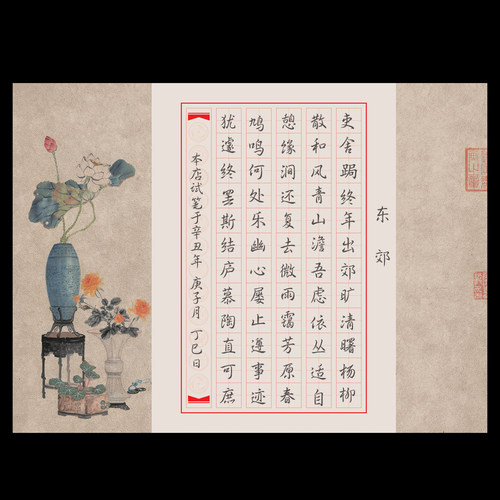 东郊
吏舍跼终年出郊旷清曙杨柳
散和风青山澹吾虑依丛适自
憩缘涧还复去微雨霭芳原春
鸠鸣何处乐幽心屡止遵事迹
犹遽终罢斯结庐慕陶直可庶
本店试笔于辛丑年 庚子月 丁巳日